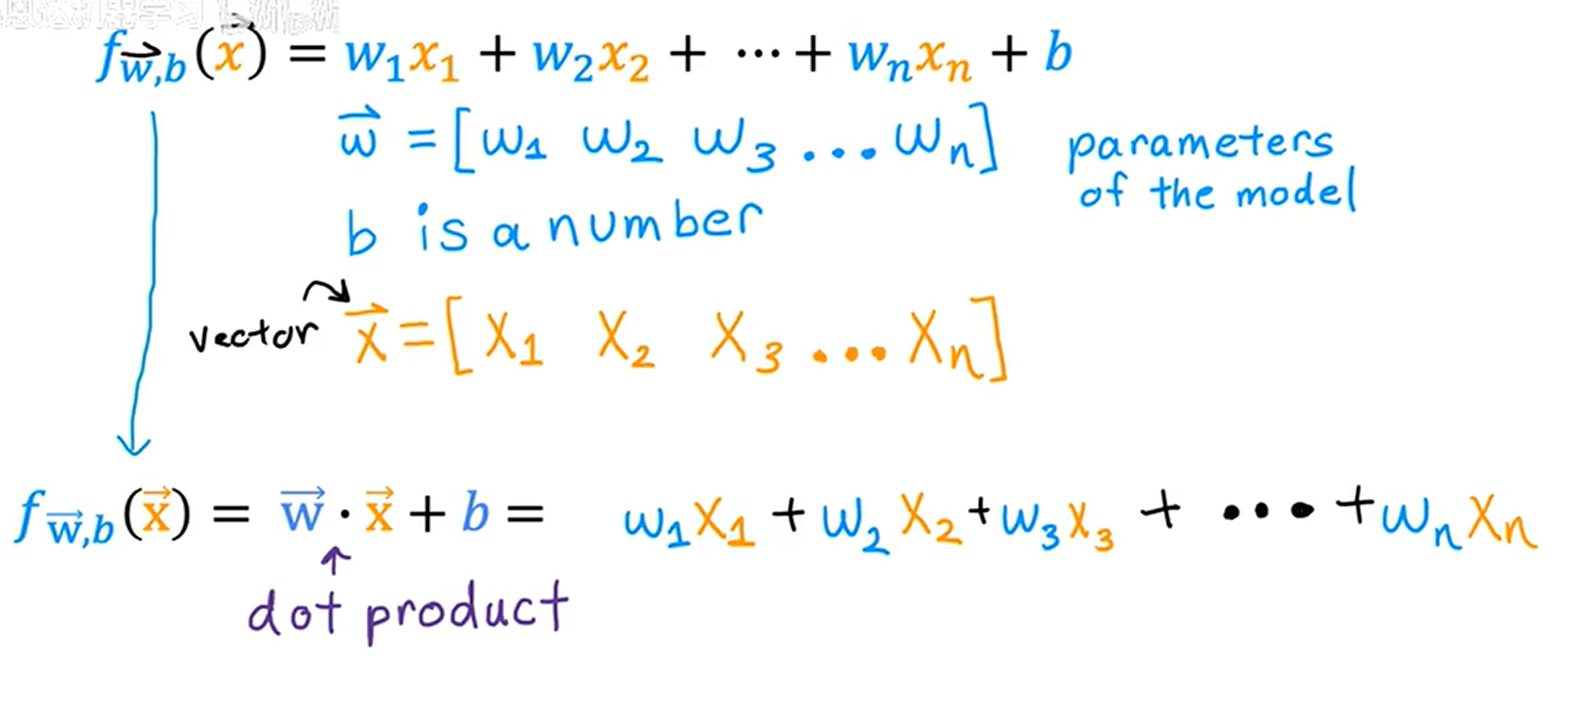 f_{\vec{w},b}(\vec{x}) = w₁x₁ + w₂x₂ + ⋯ + wₙxₙ + b
\vec{w} = [w₁ w₂ w₃ ... wₙ] parameters
of the model
b is a number
vector \vec{x} = [x₁ x₂ x₃ ... xₙ]
f_{\vec{w},b}(\vec{x}) = \vec{w} · \vec{x} + b = w₁x₁ + w₂x₂ + w₃x₃ + ... + wₙxₙ
dot product